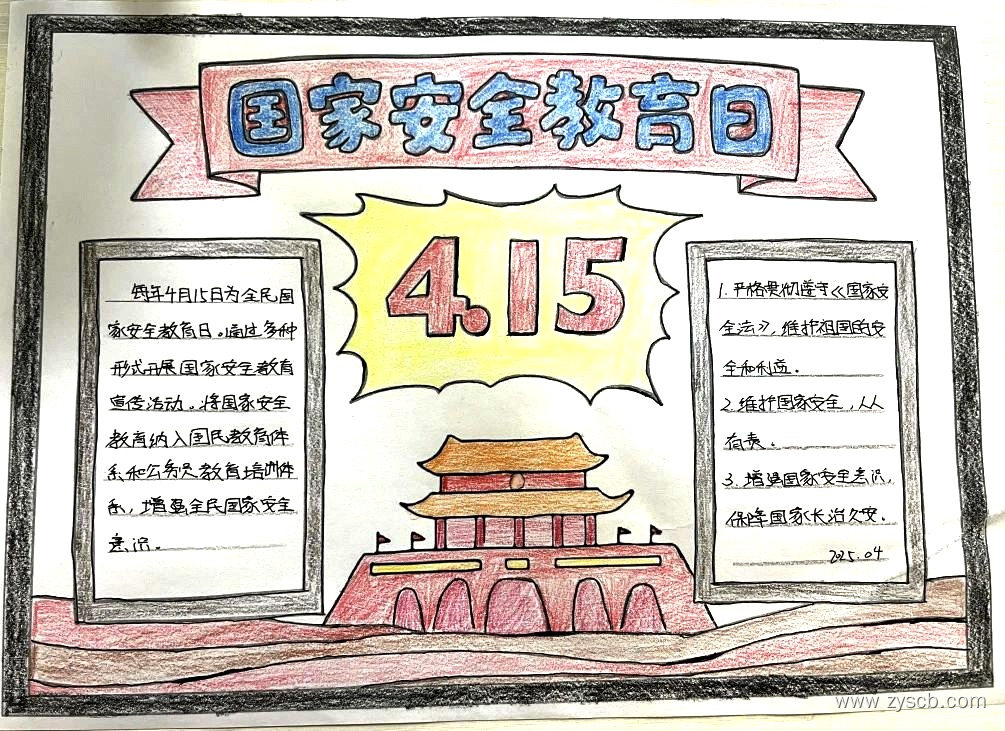 国家安全教育日
4.15
每年4月15日为全民国
家安全教育日。通过多种
形式开展国家安全教育
宣传活动。将国家安全
教育纳入国民教育体
系和公务员教育培训体
系，增强全民国家安全
意识。
1. 严格贯彻遵守《国家安
全法》，维护祖国的安
全和利益。
2. 维护国家安全，人人
有责。
3. 增强国家安全意识，
保障国家长治久安。
2025.04
www.zyscb.com